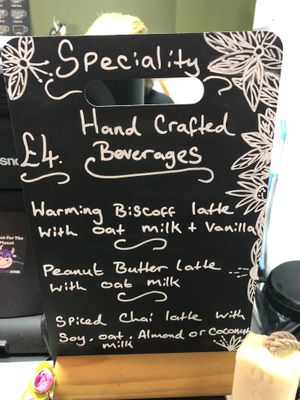 Speciality
Hand Crafted
£4. Beverages
Warming Biscoff latte
with oat milk + Vanilla
Peanut Butter Latte
with oat milk
Spiced Chai latte with
Soy, oat, Almond or Coconut
milk